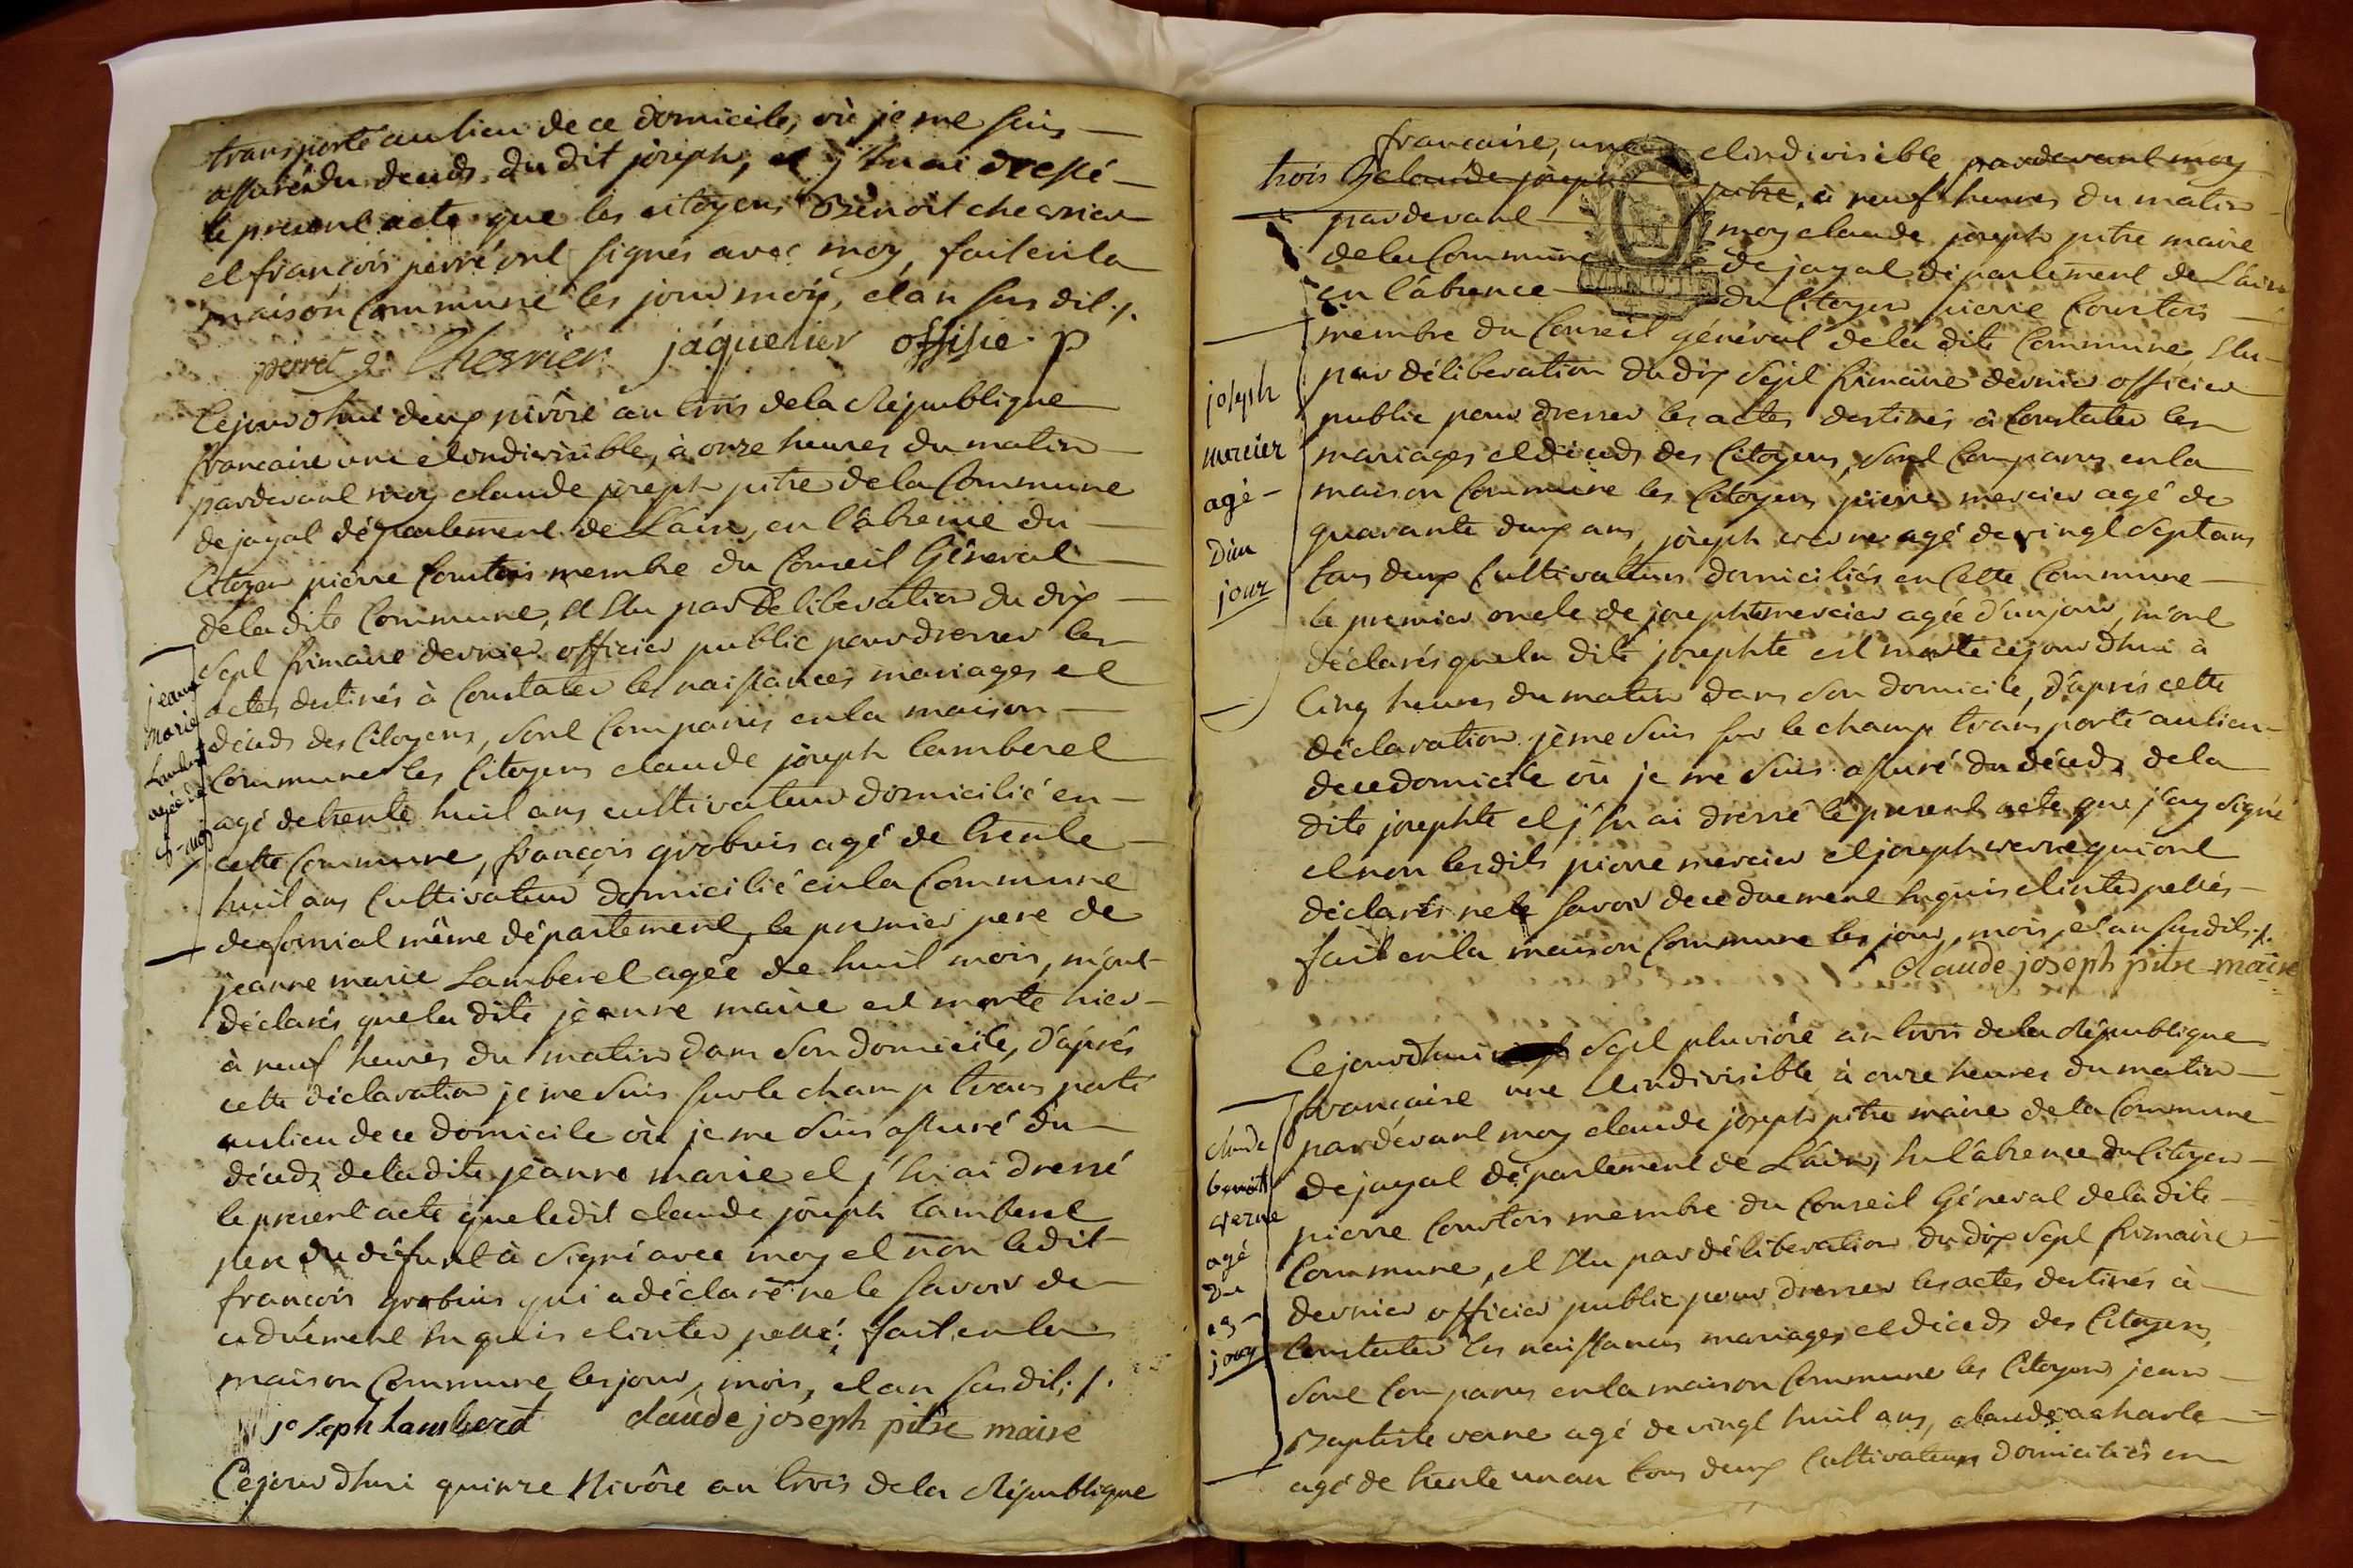 transporté au lieu de ce domicile, où je me suis
assuré du deceds du dit joseph, et j'en ai dressé
le present acte que les citoyens Benoit chevrier
et françois perré ont signés avec moy, fait en la
maison Commune les jour mois, et an sus dit ./.
perret Chevrier jáquelier offisie p
Cejourdhui deux nivôse an trois de la République
francaise une et indivisible, à onze heures du matin
pardevant moy claude joseph pitre de la Commune
de jayat département de L'ain, en l'absence du
Citoyen pierre Courtois membre du Conseil Géneral
de la dite Commune, et Elu par Deliberation du dix
sept frimaire dernier officier public pour dresser les
actes destinés à Constater les naissances mariages et
décéds des Citoyens, sont Comparus en la maison
Commune les Citoyens claude joseph lamberet
agé de trente huit ans cultivateur domicilié en
cette Commune, françois grobuis agé de trente
huit ans Cultivateur domicilié en la Commune
de même département, le premier pere de
jeanne marie Lamberet agée de huit mois, m'ont
déclarés que la dite jeanne marie est morte hier
à neuf heures du matin dans son domicile, d'aprés
cette déclaration je me suis sur le champ transporté
au lieu de ce domicile où je me suis assuré du
décéds de la dite jeanne marie et j'en ai dressé
le present acte que le dit claude joseph lamberet
pere du défunt à signé avec moy et non le dit
francois grobuis qui a déclaré ne le savoir de
ce duement enquis et interpellé; fait en la
maison Commune les jour, mois, et an sus dit; ./.
joseph Lamberet claude joseph pitre maire
Cejourdhui quinze Nivôse an trois de la République
jeanne
marie
Lamberet
agée de
8 mois
francaise, une et indivisible pardevant moy
trois claude joseph pitre, à neuf heures du matin
pardevant moy claude joseph pitre maire
de la Commune de jayat département de L'ain
en l'absence du Citoyen pierre Courtois
MINUTE
membre du Conseil général de la dite Commune Elu
par déliberation du dix sept frimaire dernier officier
public pour dresser les actes destinés à Constater les
mariages et décéds des Citoyens, sont Comparus en la
maison Commune les Citoyens pierre mercier agé de
quarante deux ans, joseph verne agé de vingt sept ans
tous deux Cultivateurs domiciliés en Cette Commune
le premier oncle de josephte mercier agée d'un jour, m'ont
déclarés que la dite josephte est morte cejourdhui à
Cinq heures du matin dans son domicile, d'aprés cette
déclaration je me suis sur le champ transporté au lieu
de ce domicile où je me suis assuré du décéds de la
dite josephte et j'en ai dressé le present acte que j'ay signé
et non les dits pierre mercier et joseph verne qui ont
déclarés ne le savoir de ce duement enquis et interpellés
fait en la maison Commune les jour, mois, et an sus dit ./.
Claude joseph pitre maire
joseph
mercier
agé
d'un
jour
Cejourdhui sept pluviôse an trois de la République
francaise une et indivisible à onze heures du matin
pardevant moy claude joseph pitre maire de la Commune
de jayat département de L'ain, en l'absence du Citoyen
pierre Courtois membre du Conseil Géneral de la dite
Commune, et Elu par déliberation du dix sept frimaire
dernier officier public pour dresser les actes destinés à
Constater les naissances mariages et décéds des Citoyens
sont Comparus en la maison Commune les Citoyens jean
Baptiste verne agé de vingt huit ans, claude
agé de trente un an tous deux Cultivateurs domiciliés en
claude
benoit
verne
agé
de
jours